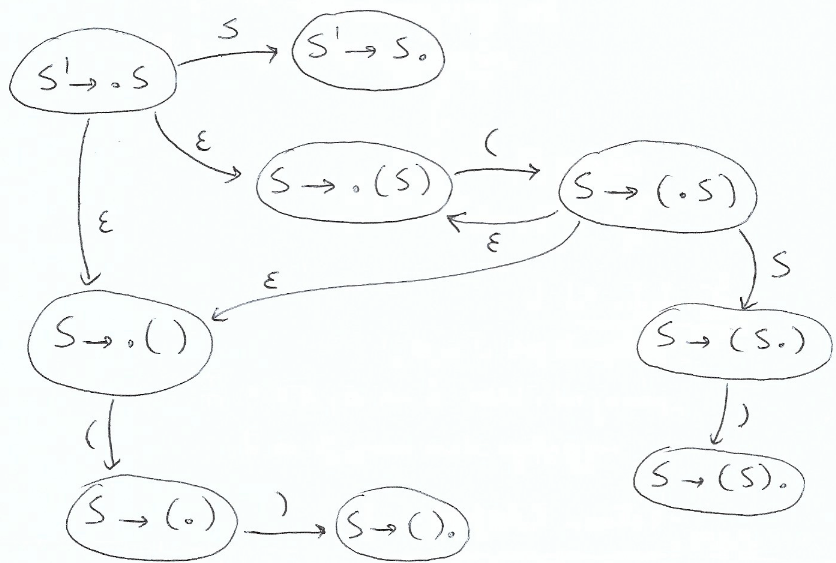 S
S' → .S
S' → S.
ε
(
S → .(S)
S → (.S)
ε
ε
ε
S
S → .()
S → (S.)
(
)
S → (S).
S → (.)
)
S → ().